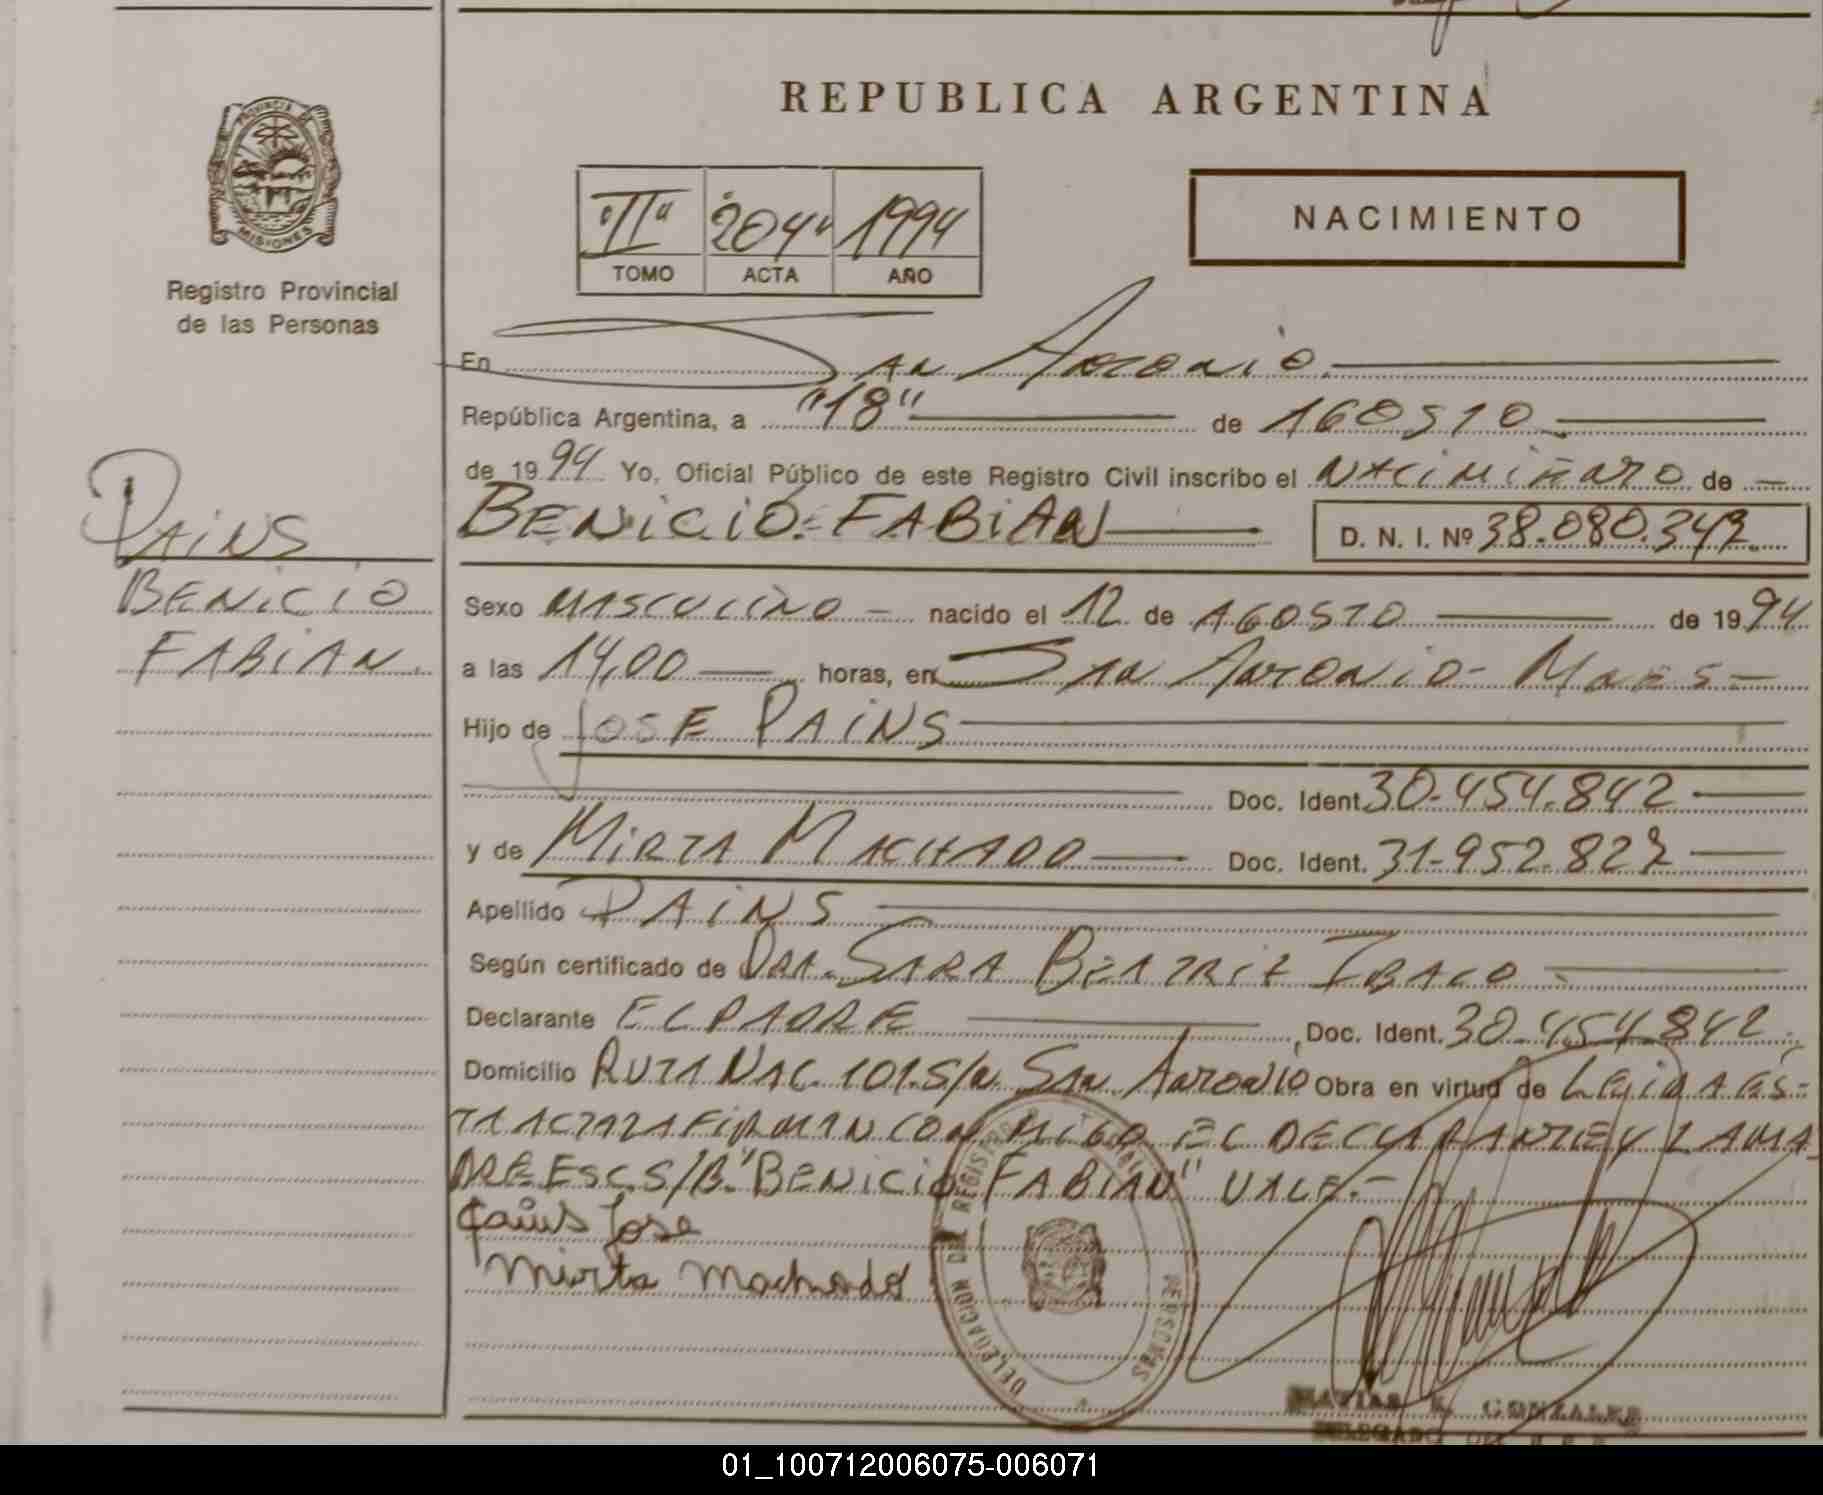 REPUBLICA ARGENTINA
PROVINCIA
MISIONES
Registro Provincial
de las Personas
"II" "204" 1994
TOMO ACTA AÑO
NACIMIENTO
En San Antonio.
República Argentina, a "18" de AGOSTO
de 1994 Yo, Oficial Público de este Registro Civil inscribo el NACIMIENTO de
BENICIO FABIAN D. N. I. Nº 38.080.347
PAINS
BENICIO
FABIAN.
Sexo MASCULINO nacido el 12 de AGOSTO de 1994
a las 14,00 horas, en SAN ANTONIO - Mnes
Hijo de JOSE PAINS
Doc. Ident. 30.454.842
y de MIRTA MACHADO Doc. Ident. 31.952.827
Apellido PAINS
Según certificado de DRA. SARA BEATRIZ
Declarante EL PADRE, Doc. Ident. 30.454.842
Domicilio RUTA NAC. 101 S/N SAN ANTONIO Obra en virtud de LEIDA ES-
TA ACTA LA FIRMAN CONMIGO EL DECLARANTE Y LA MA
DRE ESC. S/B. "BENICIO FABIAN" VALE.-
Pains Jose
Mirta Machado
DELEGACION DEL REGISTRO PERSONAS
GONZALEZ
DELEGADO DEL R.P.P.
01_100712006075-006071